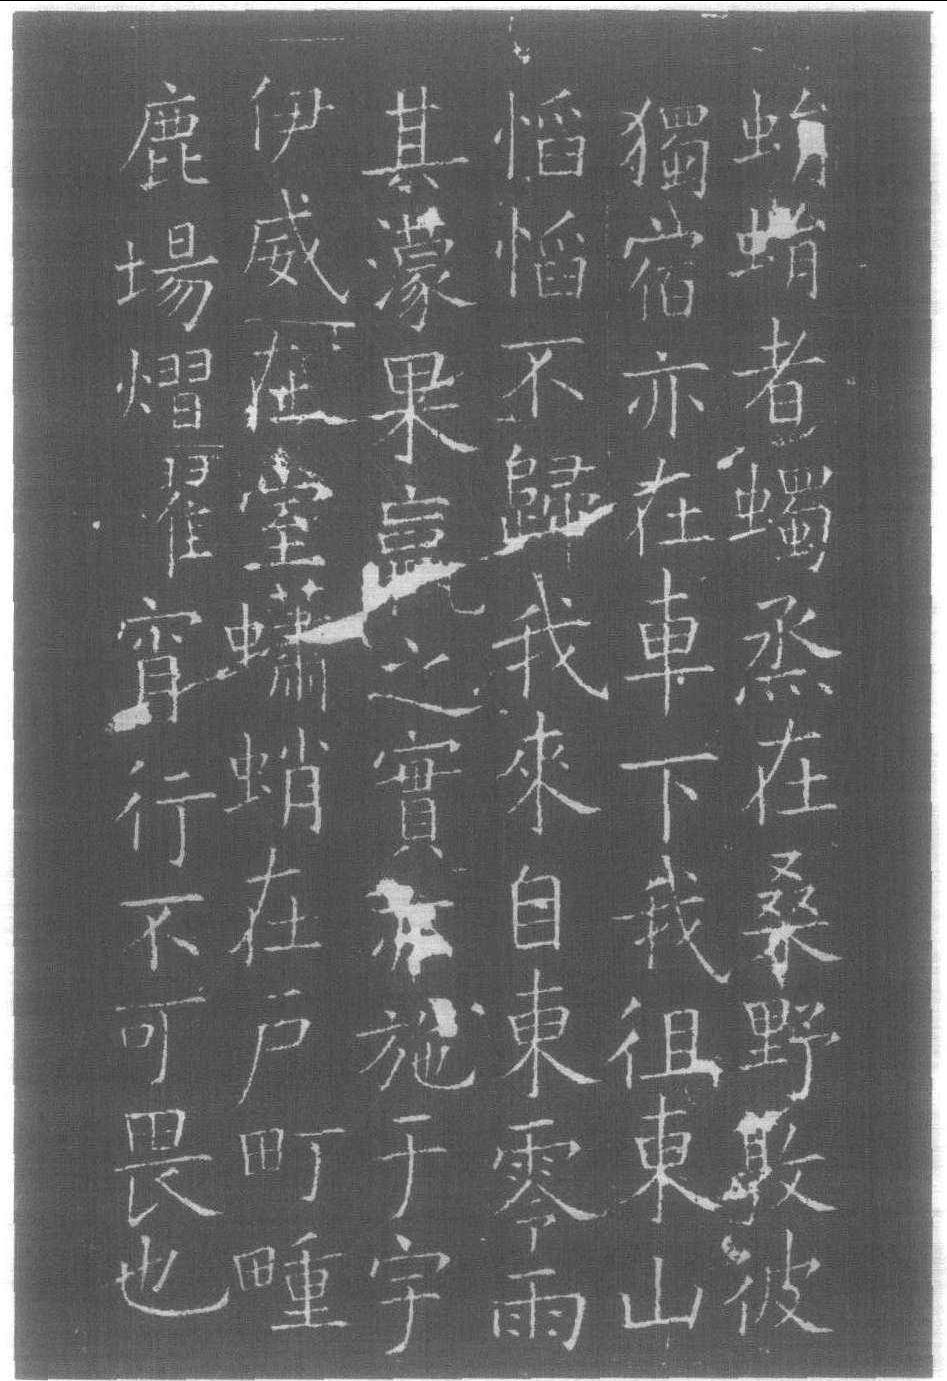 蜎蜎者蠋烝在桑野敦彼
獨宿亦在車下我徂東山
慆慆不歸我來自東零雨
其濛果臝之實亦施于宇
伊威在室蠨蛸在戶町畽
鹿場熠翟宵行不可畏也